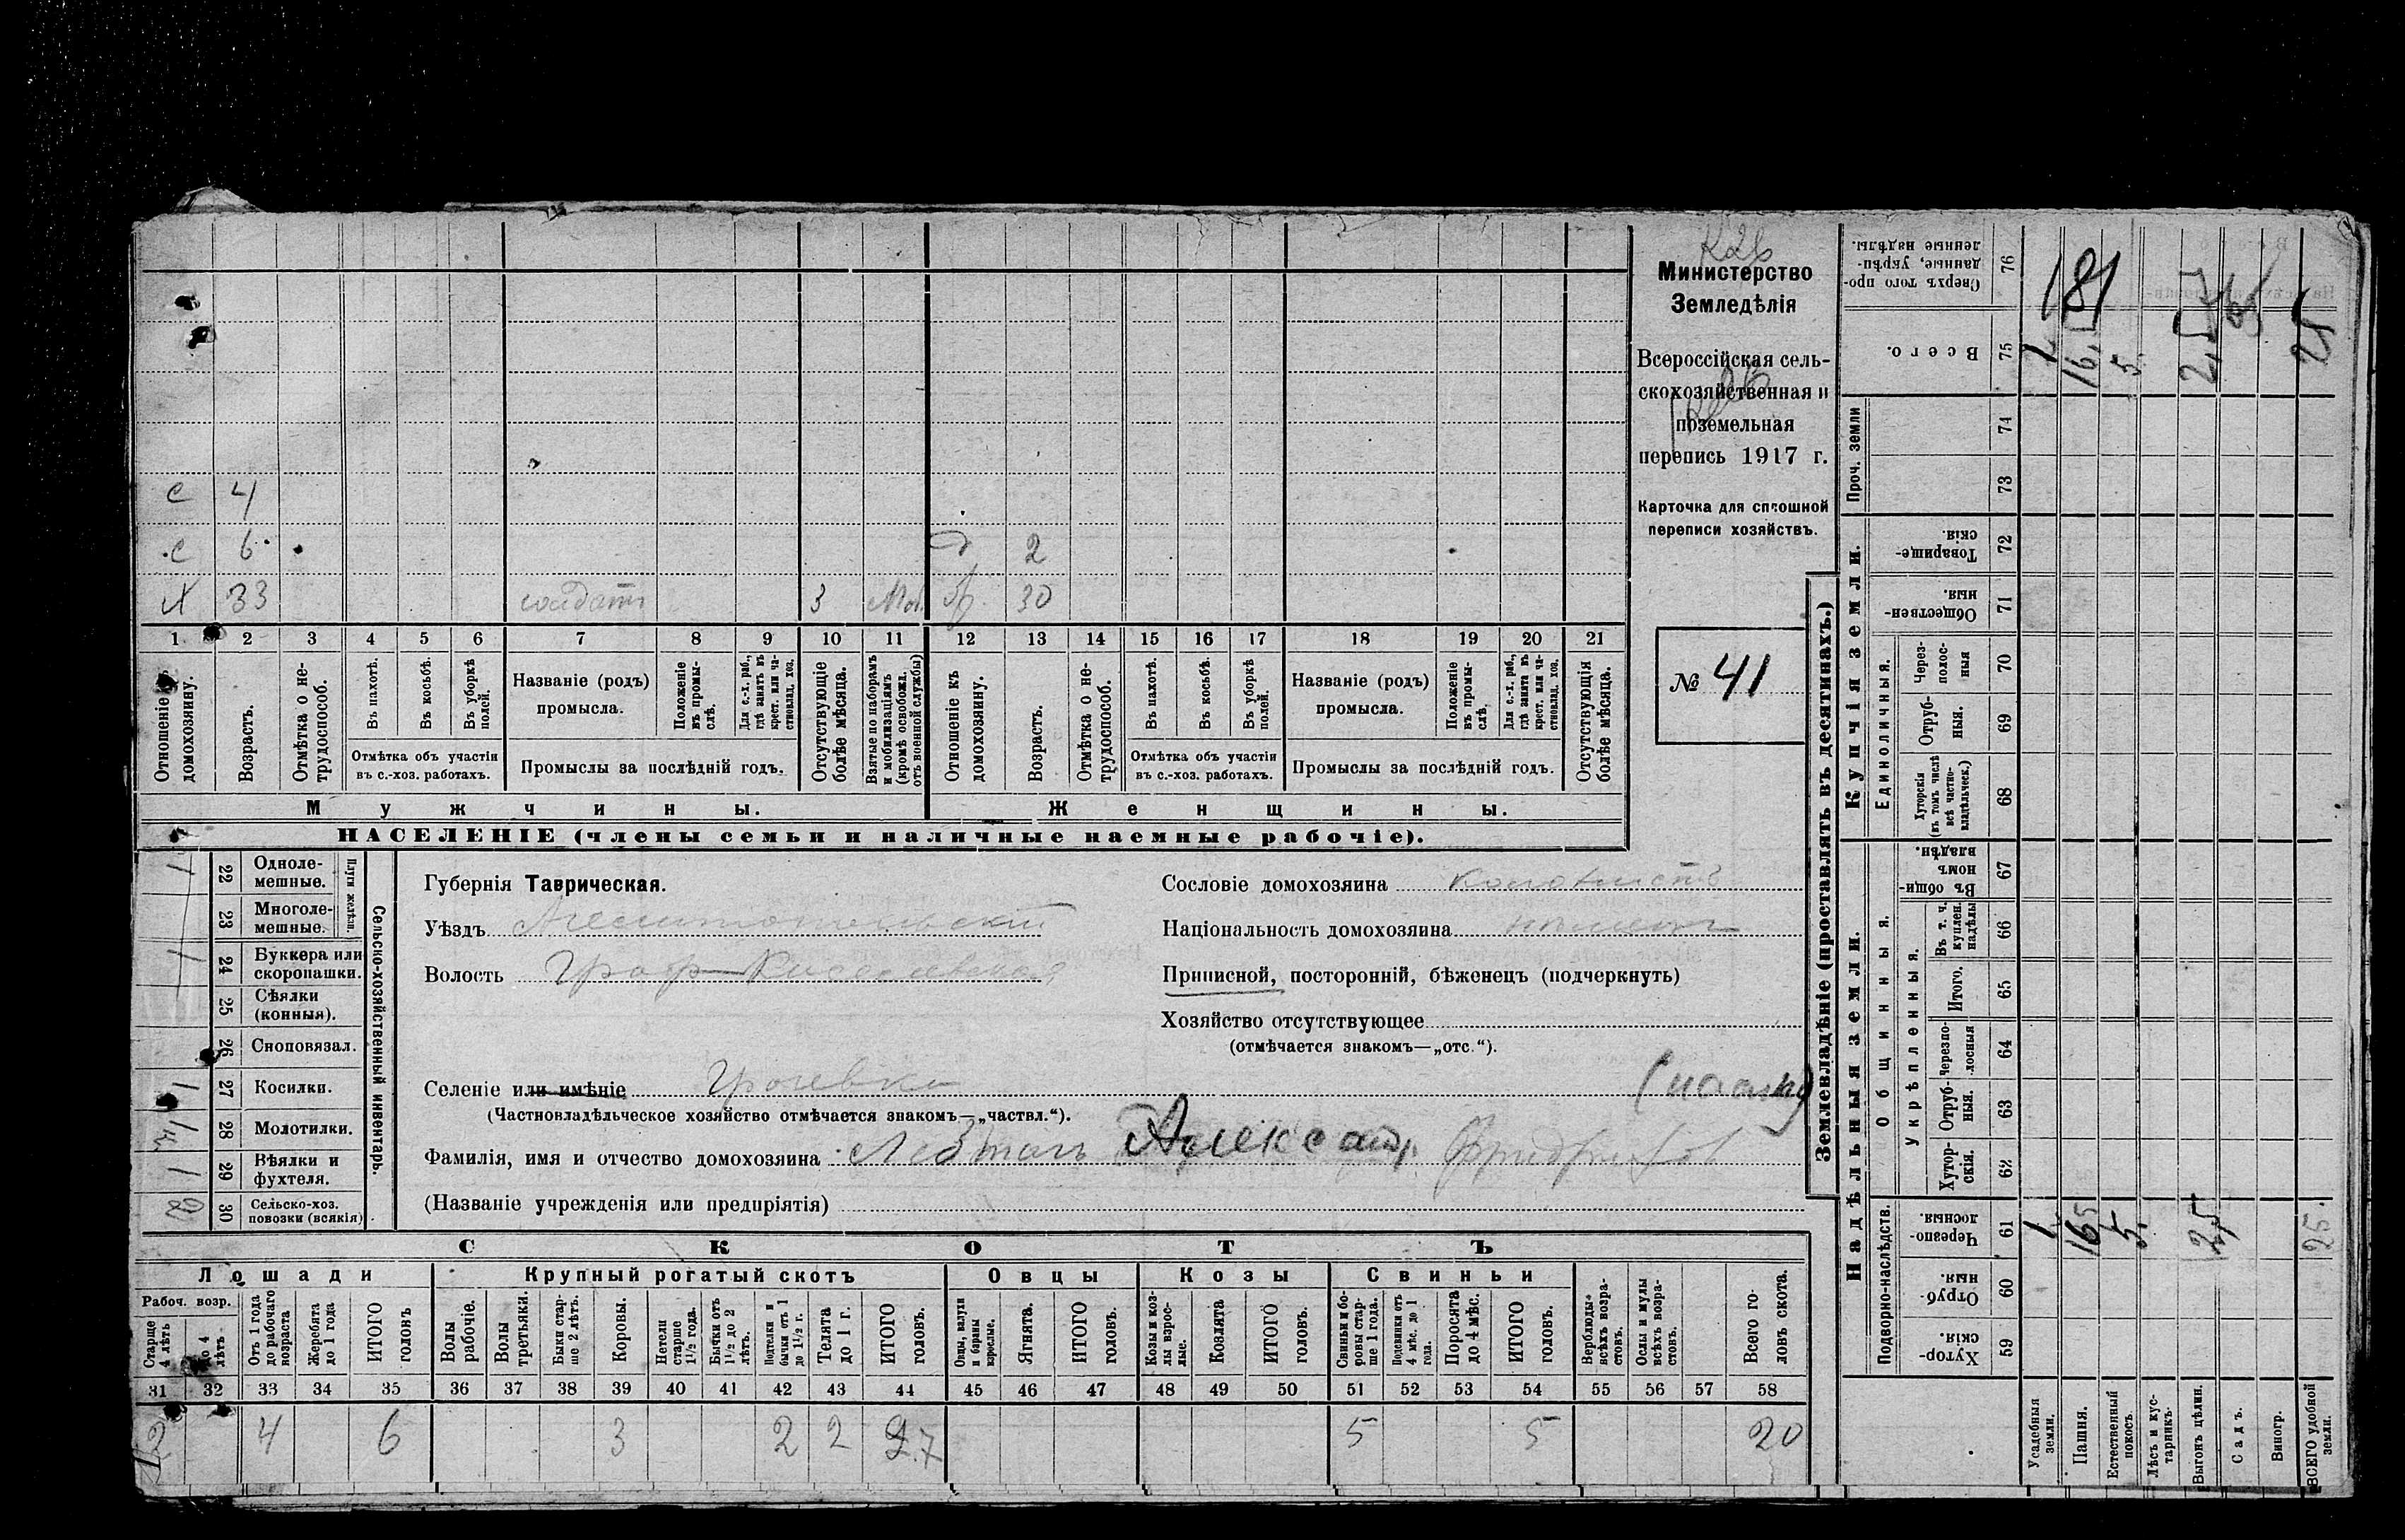 Министерство
Земледѣлія
Всероссійская сель-
скохозяйственная и
поземельная
перепись 1917 г.
Карточка для сплошной
переписи хозяйствъ.
№ 41
с 4
с 6 2
х 33 солдатъ 3 Моб. 30
1 2 3 4 5 6 7 8 9 10 11 12 13 14 15 16 17 18 19 20 21
Отношеніе къ домохозяину.
Возрастъ.
Отмѣтка о не-трудоспособ.
Въ пахотѣ.
Въ косьбѣ.
Въ уборкѣ полей.
Отмѣтка объ участіи
въ с.-хоз. работахъ.
Названіе (родъ)
промысла.
Положеніе въ промы-слѣ.
Для с.-х. раб., гдѣ занятъ въ крест. или ча-стновлад. хоз.
Промыслы за послѣдній годъ.
Отсутствующіе болѣе мѣсяца.
Взятые по наборамъ и мобилизаціямъ (кромѣ освобожд. отъ военной службы)
Отношеніе къ домохозяину.
Возрастъ.
Отмѣтка о не-трудоспособ.
Въ пахотѣ.
Въ косьбѣ.
Въ уборкѣ полей.
Отмѣтка объ участіи
въ с.-хоз. работахъ.
Названіе (родъ)
промысла.
Положеніе въ промы-слѣ.
Для с.-х. раб., гдѣ занята въ крест. или ча-стновлад. хоз.
Промыслы за послѣдній годъ.
Отсутствующія болѣе мѣсяца.
Мужчины.
Женщины.
НАСЕЛЕНІЕ (члены семьи и наличные наемные рабочіе).
Сельско-хозяйственный инвентарь.
Плуги желѣзн.
22 Одноле-мешные. 1
23 Многоле-мешные.
24 Буккера или скоропашки. 1
25 Сѣялки (конныя).
26 Сноповязал.
27 Косилки. 1
28 Молотилки.
29 Вѣялки и фухтеля. 1
30 Сельско-хоз. повозки (всякія) 2
Губернія Таврическая.
Уѣздъ Мелитопольскій
Волость
Селеніе или имѣніе
(Частновладѣльческое хозяйство отмѣчается знакомъ—„частвл.“).
Фамилія, имя и отчество домохозяина Александръ Фридрихов
(Названіе учрежденія или предпріятія)
Сословіе домохозяина колонистъ
Національность домохозяина нѣмецъ
Приписной, посторонній, бѣженецъ (подчеркнуть)
Хозяйство отсутствующее
(отмѣчается знакомъ—„отс.“).
СКОТЪ
Лошади
Крупный рогатый скотъ
Овцы
Козы
Свиньи
Рабоч. возр.
Старше 4 лѣтъ
до 4 лѣтъ
Отъ 1 года до рабочаго возраста
Жеребята до 1 года
ИТОГО головъ
Волы рабочіе.
Волы третьяки.
Быки стар-ше 2 лѣтъ.
Коровы.
Нетели старше 1½ года.
Бычки отъ 1½ до 2 лѣтъ.
Подтелки и бычки отъ 1 до 1½ г.
Телята до 1 г.
ИТОГО головъ.
Овцы, валухи и бараны взрослые.
Ягнята.
ИТОГО головъ.
Козы и коз-лы взрос-лые.
Козлята
ИТОГО головъ.
Свиньи и бо-ровы стар-ше 1 года.
Подсвинки отъ 4 мѣс. до 1 года.
Поросята до 4 мѣс.
ИТОГО головъ.
Верблюды всѣхъ возра-стовъ.
Ослы и мулы всѣхъ возра-стовъ.
Всего го-ловъ скота.
31 32 33 34 35 36 37 38 39 40 41 42 43 44 45 46 47 48 49 50 51 52 53 54 55 56 57 58
2 4 6 3 2 2 7 5 5 20
Землевладѣніе (проставлять въ десятинахъ.)
Надѣльныя земли.
Купчія земли.
Проч. земли
Подворно-наслѣдств.
Общинныя.
Укрѣпленныя.
Единоличныя.
Хутор-скія. 59
Отруб-ныя. 60
Черезпо-лосныя. 61
Хутор-скія. 62
Отруб-ныя. 63
Черезпо-лосныя 64
Итого. 65
Въ т. ч. куплен. надѣлы 66
Въ общи-номъ владѣн. 67
Хуторскія (въ томъ числѣ всѣ частно-владѣльческ.) 68
Отруб-ныя. 69
Через-полос-ныя 70
Обществен-ныя. 71
Товарище-скія. 72
73
74
Всего. 75
Сверхъ того про-данные, укрѣп-ленные надѣлы. 76
Усадебныя земли. 1
Пашня. 165 16,5
Естественный покосъ. 5. 5.
Лѣсъ и кус-тарникъ.
Выгонъ цѣлин. 2,5 2,5
Садъ.
Виногр.
ВСЕГО удобной земли. 25.